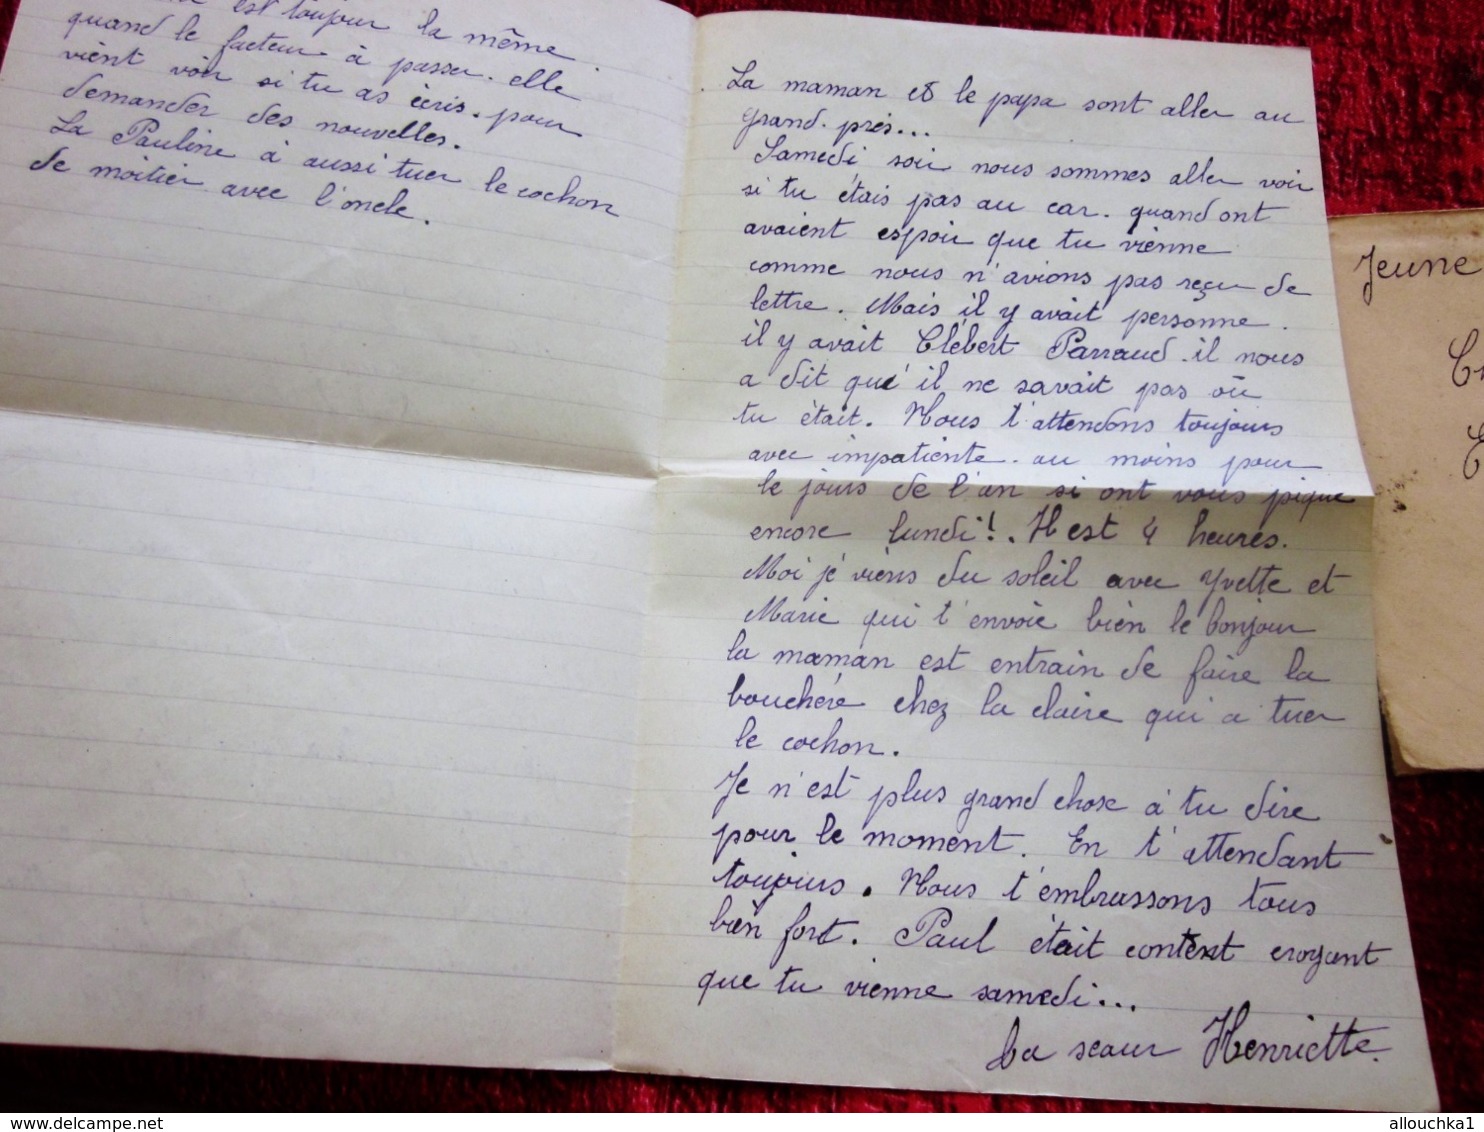 est toujour la même.
quand le facteur à passer. elle
vient voir si tu as écris. pour
demander des nouvelles.
La Pauline à aussi tuer le cochon
de moitier avec l'oncle.
La maman et le papa sont aller au
grand. prés...
Samedi soir nous sommes aller voir
si tu étais pas au car. quand ont
avaient espoir que tu vienne
comme nous n'avions pas reçu de
lettre. Mais il y avait personne.
il y avait Clébert Parraud. il nous
a dit que' il ne savait pas où
tu était. Nous t'attendons toujours
avec impatiente. au moins pour
le jours de l'an si ont vous pique
encore lundi!. Il est 4 heures.
Moi je viens du soleil avec Yvette et
Marie qui t'envoie bien le bonjour
la maman est entrain de faire la
boucherie chez la claire qui a tuer
le cochon.
Je n'est plus grand chose à tu dire
pour le moment. En t'attendant
toujours. Nous t'embrassons tous
bien fort. Paul était content croyant
que tu vienne samedi...
ta seour Henriette.
Jeune
DELCAMPE.NET
allouchka1